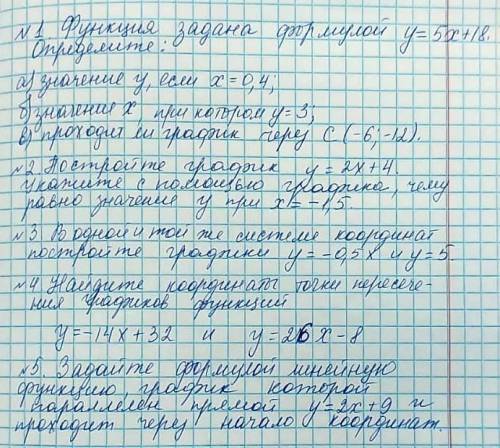 №1 Функция задана формулой y=5x+18.
Определите:
а) значение y, если x=0,4;
б) значение x, при котором y=3;
в) проходит ли график через C (-6;-12).
№2. Постройте график y=2x+4.
Укажите с помощью графика, чему
равно значение y при x=-1,5.
№3 В одной и той же системе координат
постройте графики y=-0,5x и y=5.
№4 Найдите координаты точки пересече-
ния графиков функций
y=-14x+32 и y=26x-8
№5. Задайте формулой линейную
функцию график которой
параллелен прямой y=2x+9 и
проходит через начало координат.